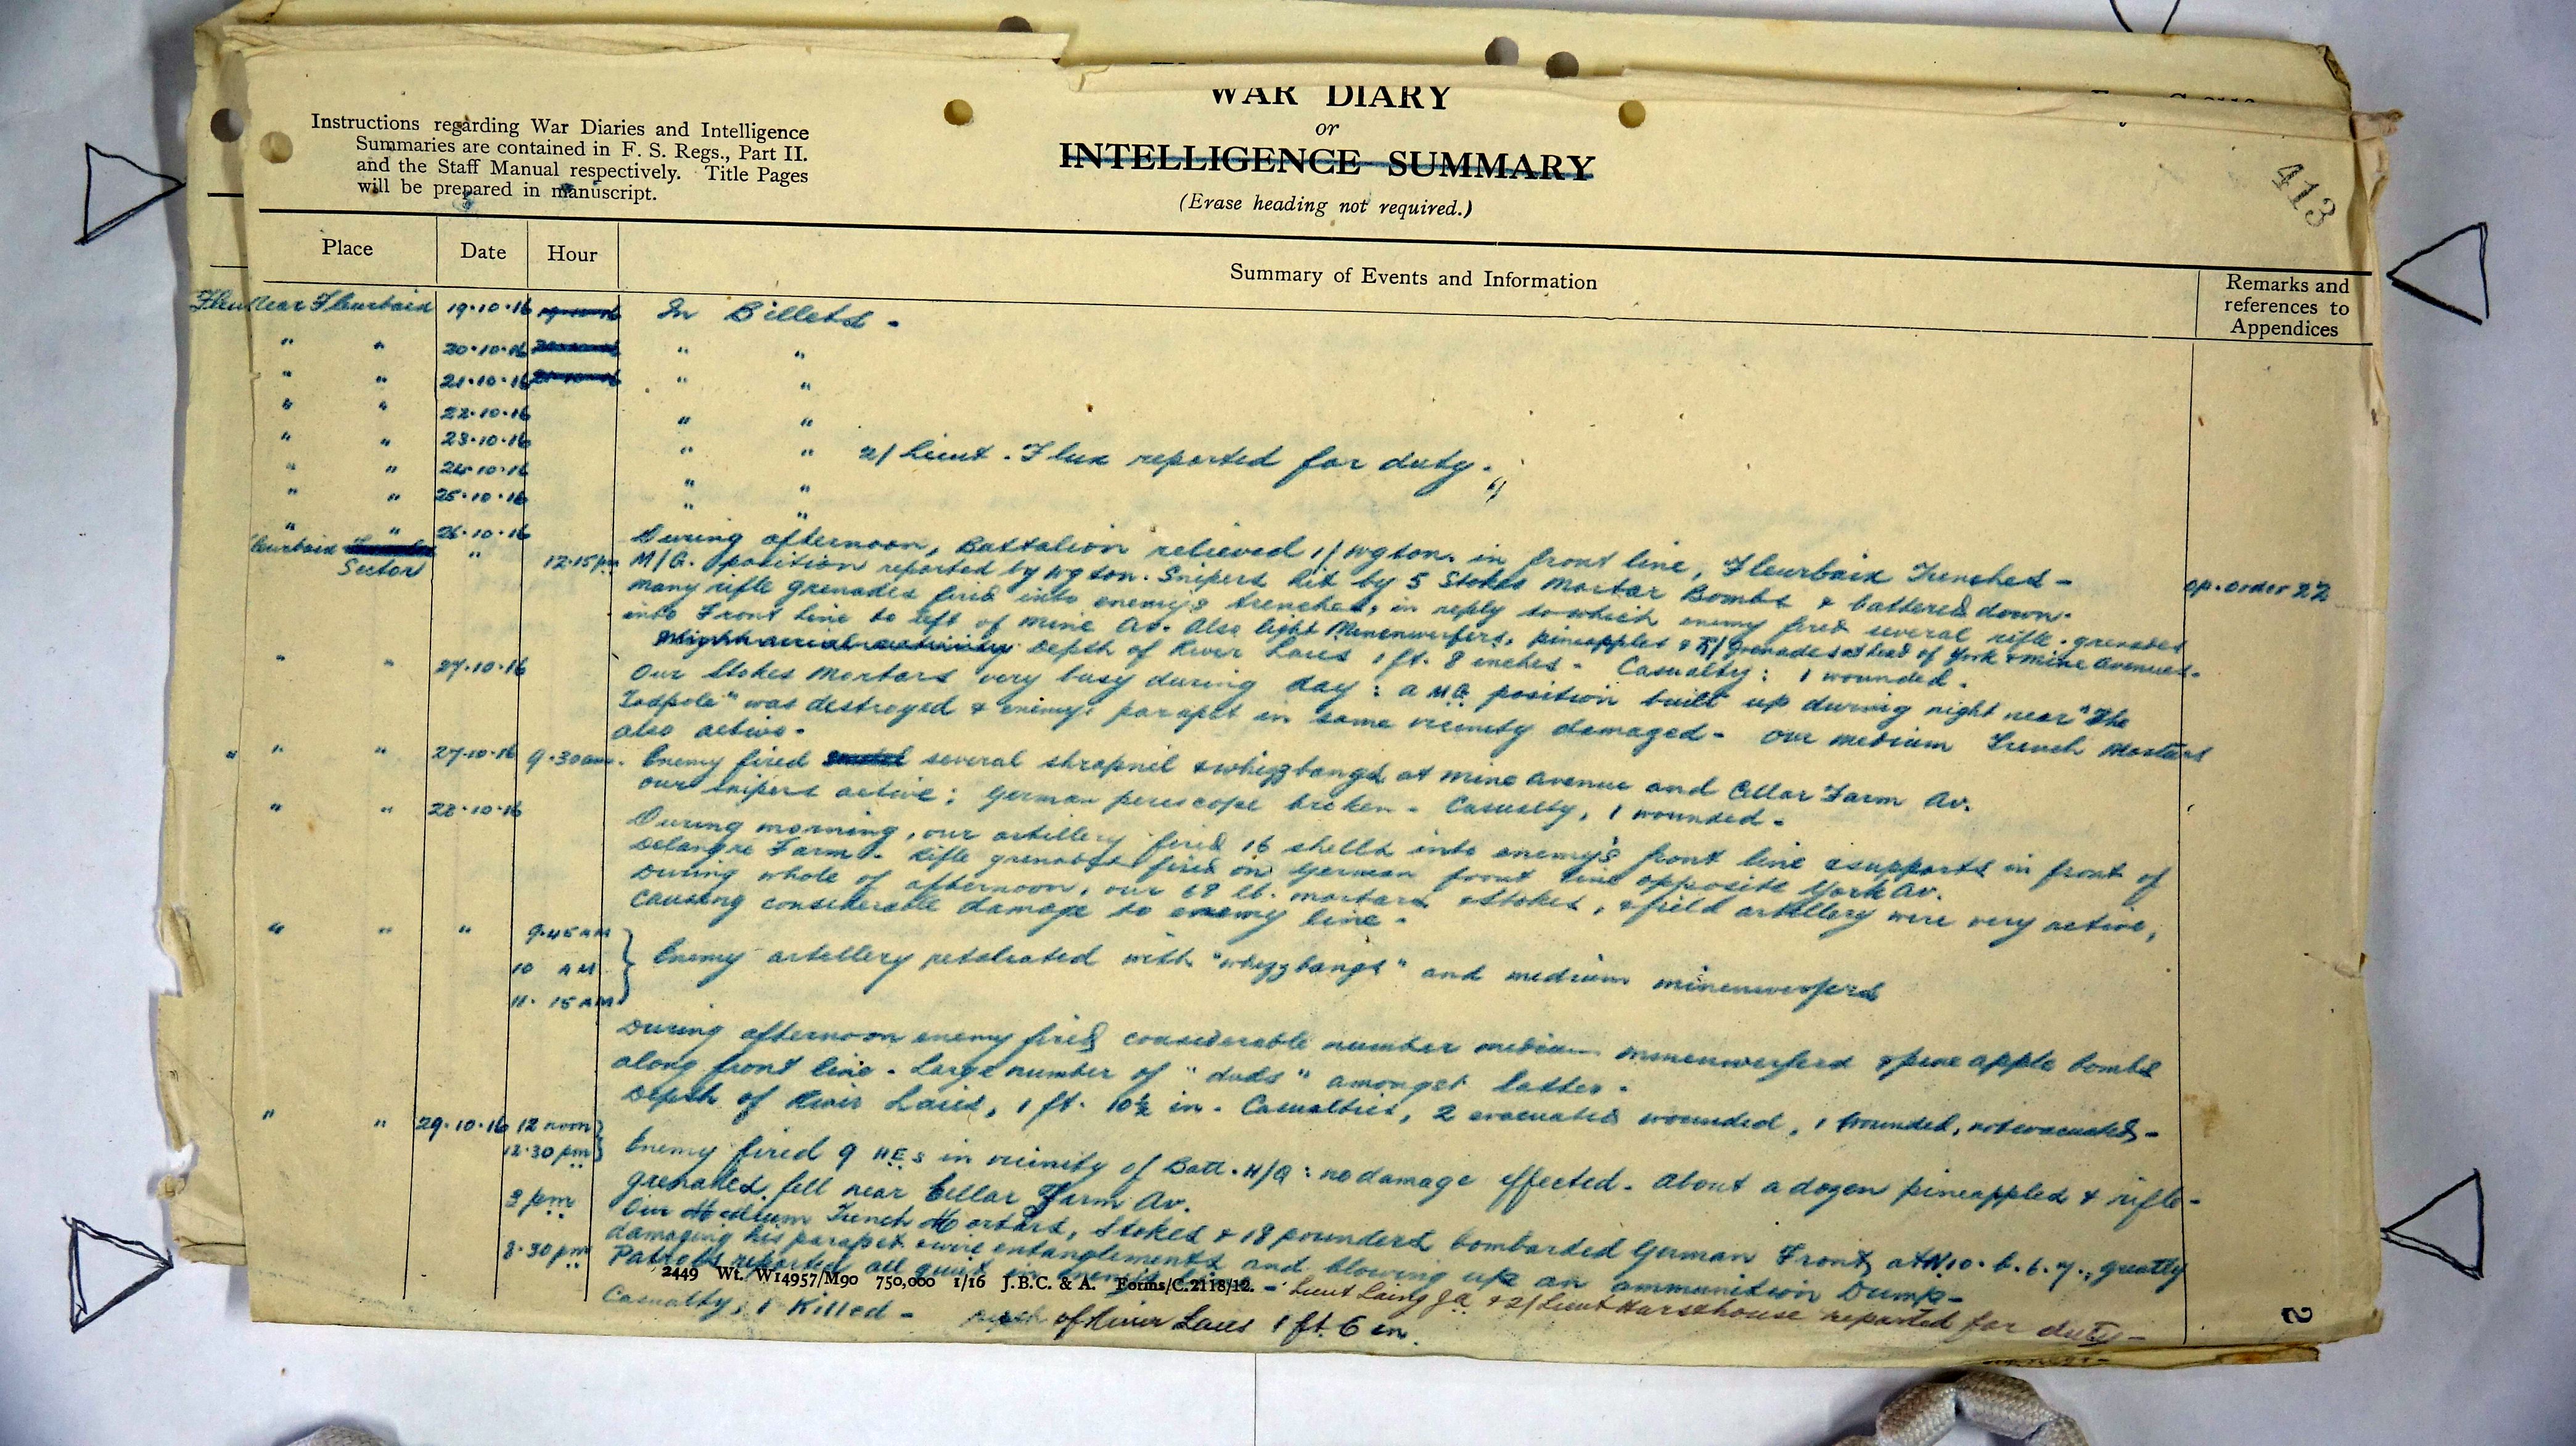 WAR DIARY
or
INTELLIGENCE SUMMARY
(Erase heading not required.)
Instructions regarding War Diaries and Intelligence
Summaries are contained in F. S. Regs., Part II.
and the Staff Manual respectively. Title Pages
will be prepared in manuscript.
413
Place Date Hour Summary of Events and Information Remarks and
references to
Appendices
Near Fleurbaix 19.10.16 In Billets -
" " 20.10.16 " "
" " 21.10.16 " "
" " 22.10.16 " "
" " 23.10.16 " " 2/ Lieut. Flux reported for duty.
" " 24.10.16 " "
" " 25.10.16 " "
" " 26.10.16 During afternoon, Battalion relieved 1/ Wgton. in front line, Fleurbaix Trenches - Op. Order 22
Fleurbaix Sector " 12.15 pm M/G. position reported by Wgton. Snipers hit by 5 Stokes Mortar Bombs & battered down.
Many rifle grenades fired into enemy's trenches, in reply to which enemy fired several rifle-grenades
into Front Line to left of Mine Av. Also light Minenwerfers, pineapples & R/Grenades at head of York & Mine Avenues.
Depth of River Laies 1 ft. 8 inches. Casualty: 1 wounded.
" " 27.10.16 Our Stokes Mortars very busy during day: a M.G. position built up during night near "The
Tadpole" was destroyed & enemy's parapet in same vicinity damaged - Our medium Trench Mortars
also active.
" " " 27.10.16 9.30 am. Enemy fired several shrapnel & whizzbangs at Mine Avenue and Cellar Farm Av.
Our snipers active: German periscope broken - Casualty, 1 wounded -
" " 28.10.16 During morning, our artillery fired 16 shells into enemy's front line & supports in front of
Delangre Farm. Rifle grenades fired on German front line opposite York Av.
During whole of afternoon, our 68 lb. mortars & Stokes, & field artillery were very active,
causing considerable damage to enemy line.
" " " 9.45 AM
10 AM Enemy artillery retaliated with "whizzbangs" and medium minenwerfers
11.15 AM
During afternoon enemy fired considerable number medium minenwerfers & pineapple bombs
along front line - Large number of "duds" amongst latter.
Depth of River Laies, 1 ft. 10½ in. Casualties, 2 evacuated wounded, 1 wounded, not evacuated -
" " 29.10.16 12 noon
12.30 pm Enemy fired 9 H.E.s in vicinity of Batt. H/Q: no damage effected. About a dozen pineapples & rifle-
grenades fell near Cellar Farm Av.
3 pm Our Medium Trench Mortars, Stokes & 18 pounders bombarded German Front, at N.10.b.6.7., greatly
damaging his parapet & wire entanglements and blowing up an ammunition Dump -
8.30 pm Patrols reported all quiet in enemy's - Lieut Laing & 2/Lieut Harsthouse reported for duty -
2449 Wt. W14957/M90 750,000 1/16 J.B.C. & A. Forms/C.2118/12.
Casualty, 1 Killed - Depth of River Laies 1 ft. 6 in.
2